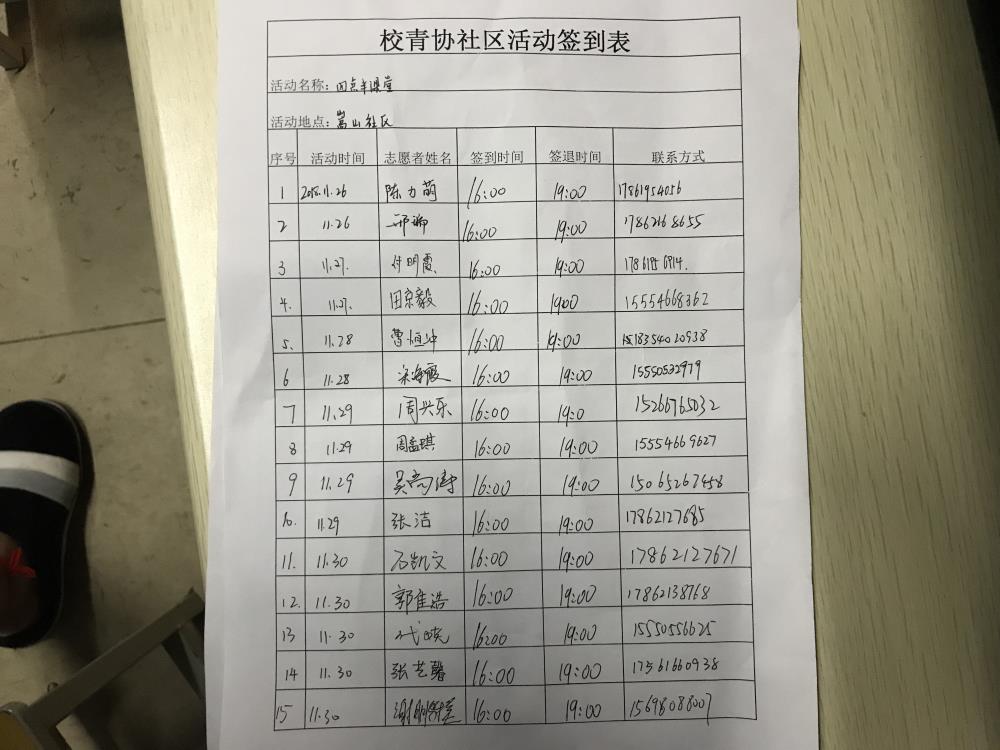 校青协社区活动签到表
活动名称：四点半课堂
活动地点：嵩山社区
序号 活动时间 志愿者姓名 签到时间 签退时间 联系方式
1 2018.11.26 陈力萌 16:00 19:00 17861954056
2 11.26 16:00 19:00 17862168655
3 11.27. 付明霞 16:00 19:00
4. 11.27. 田京毅 16:00 1900 15554668362
5. 11.28 曹恒坤 16:00 19:00
6 11.28 宋海霞 16:00 19:00 15550532979
7 11.29 周兴乐 16:00 19:0 15266765032
8 11.29 周孟琪 16:00 19:00 15554669627
9 11.29 吴尚涛 16:00 19:00 15065267458
10. 11.29 张洁 16:00 19:00 17862127685
11. 11.30 石凯文 16:00 19:00 17862127671
12. 11.30 郭佳浩 16:00 19:00 17862138768
13 11.30 代晓 16:00 19:00 15550556625
14 11.30 张艺馨 16:00 19:00 17561660938
15 11.30 16:00 19:00 15698088007